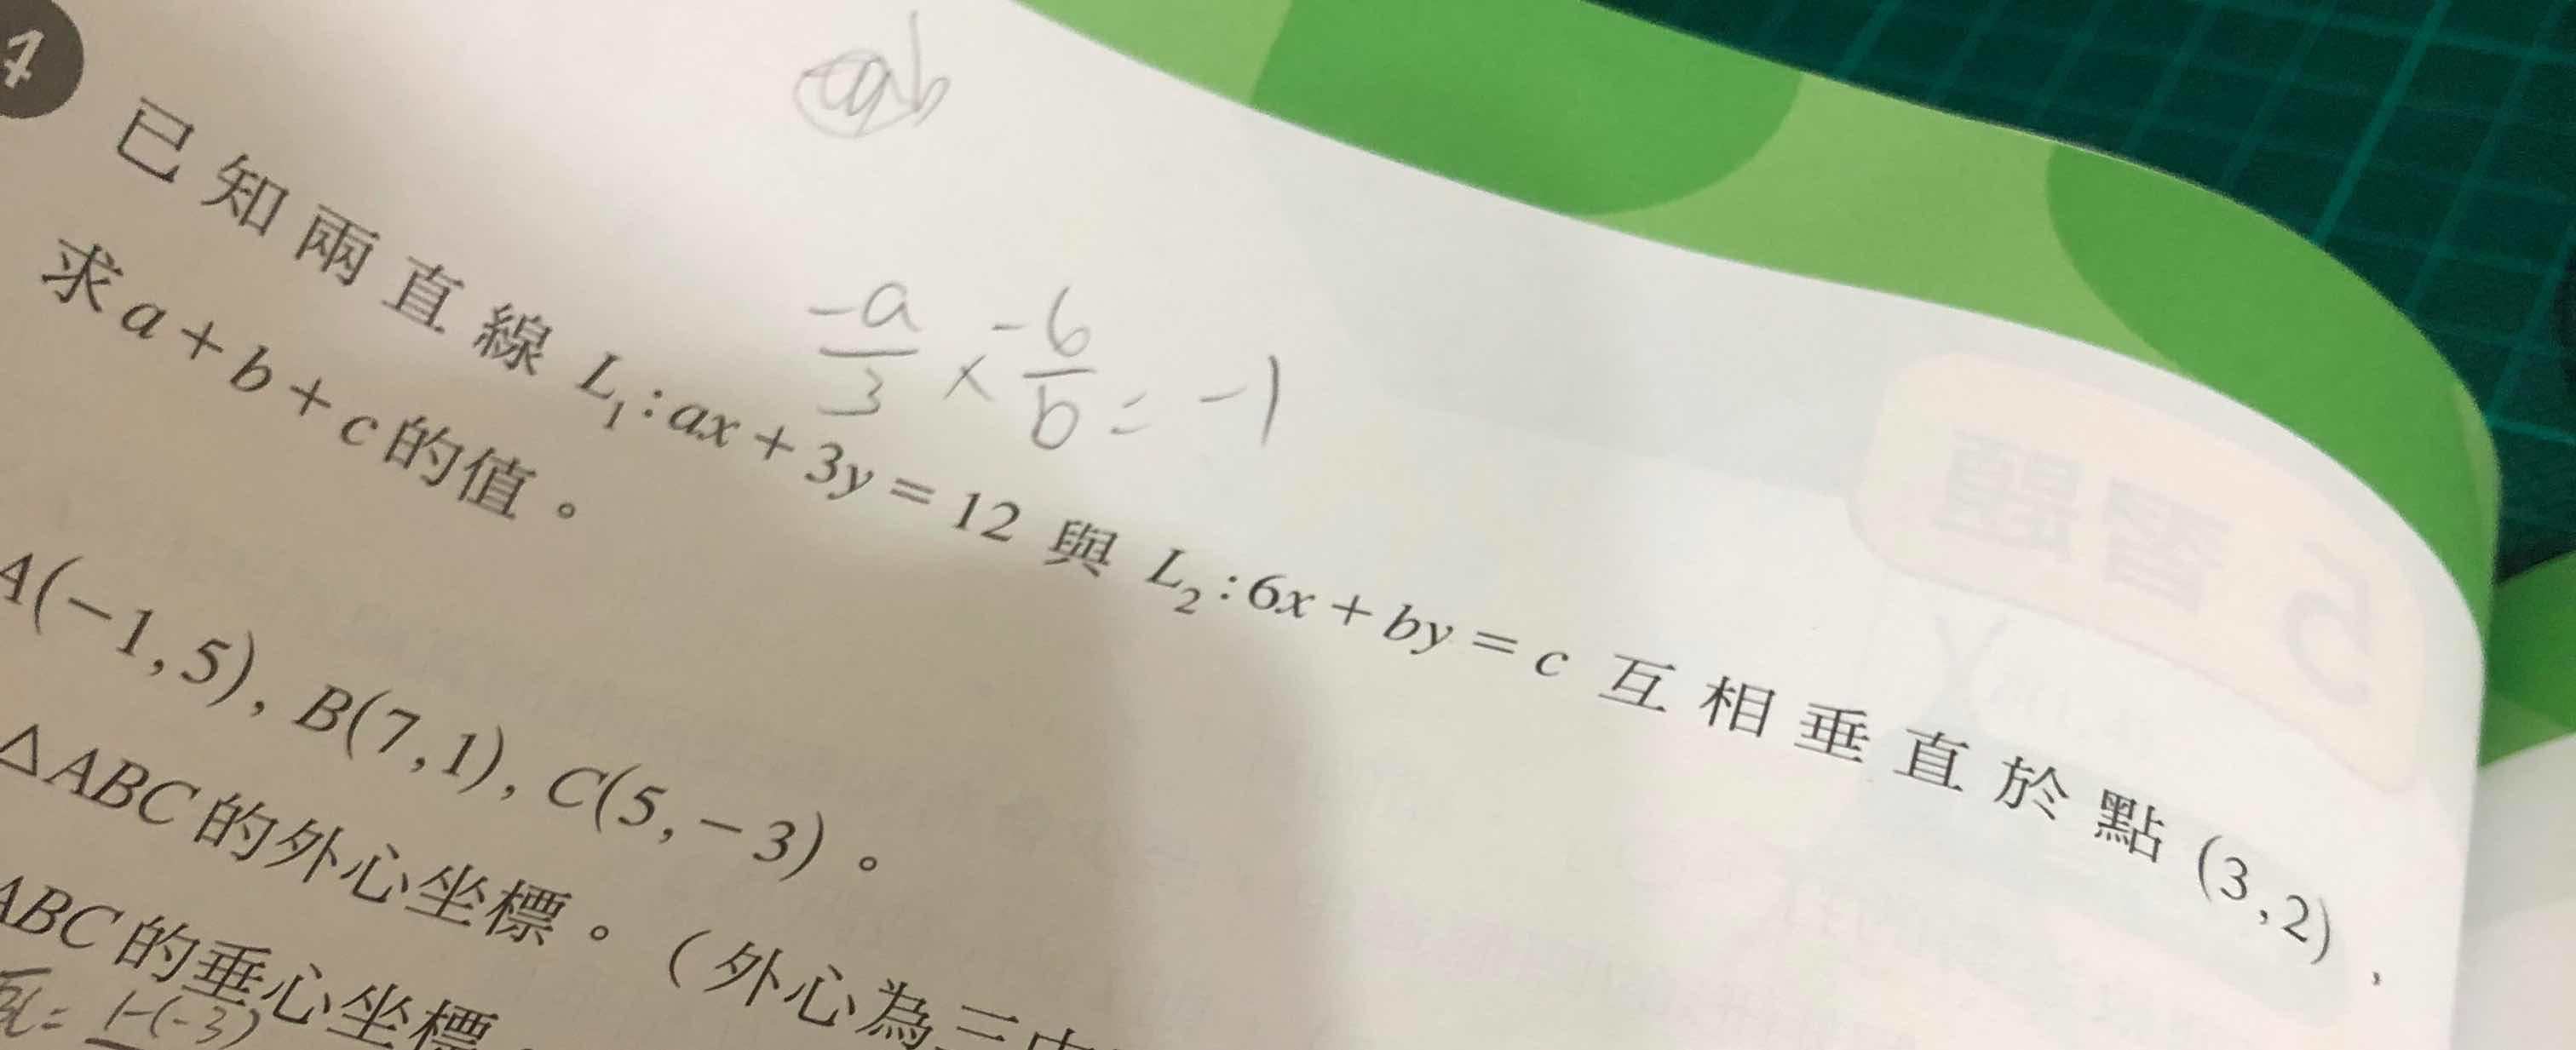 7
ab
已知兩直線 L₁:ax+3y=12 與 L₂:6x+by=c 互相垂直於點(3,2),
-a/3 × -6/b = -1
求a+b+c的值。
A(-1,5), B(7,1), C(5,-3)。
△ABC的外心坐標。(外心為三
ABC的垂心坐標
= 1-(-3)
習題
5